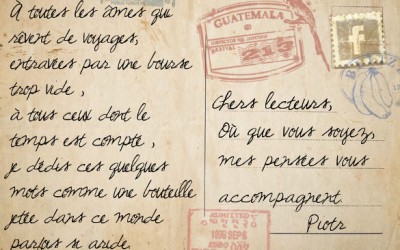 À toutes les âmes qui
rêvent de voyages,
entravées par une bourse
trop vide,
à tous ceux dont le
temps est compté,
je dédis ces quelques
mots comme une bouteille
jetée dans ce monde
parfois si aride.
GUATEMALA
213
Chers lecteurs,
Où que vous soyez,
mes pensées vous
accompagnent.
Piotr
ADMITTED
1996 SEP 6
f